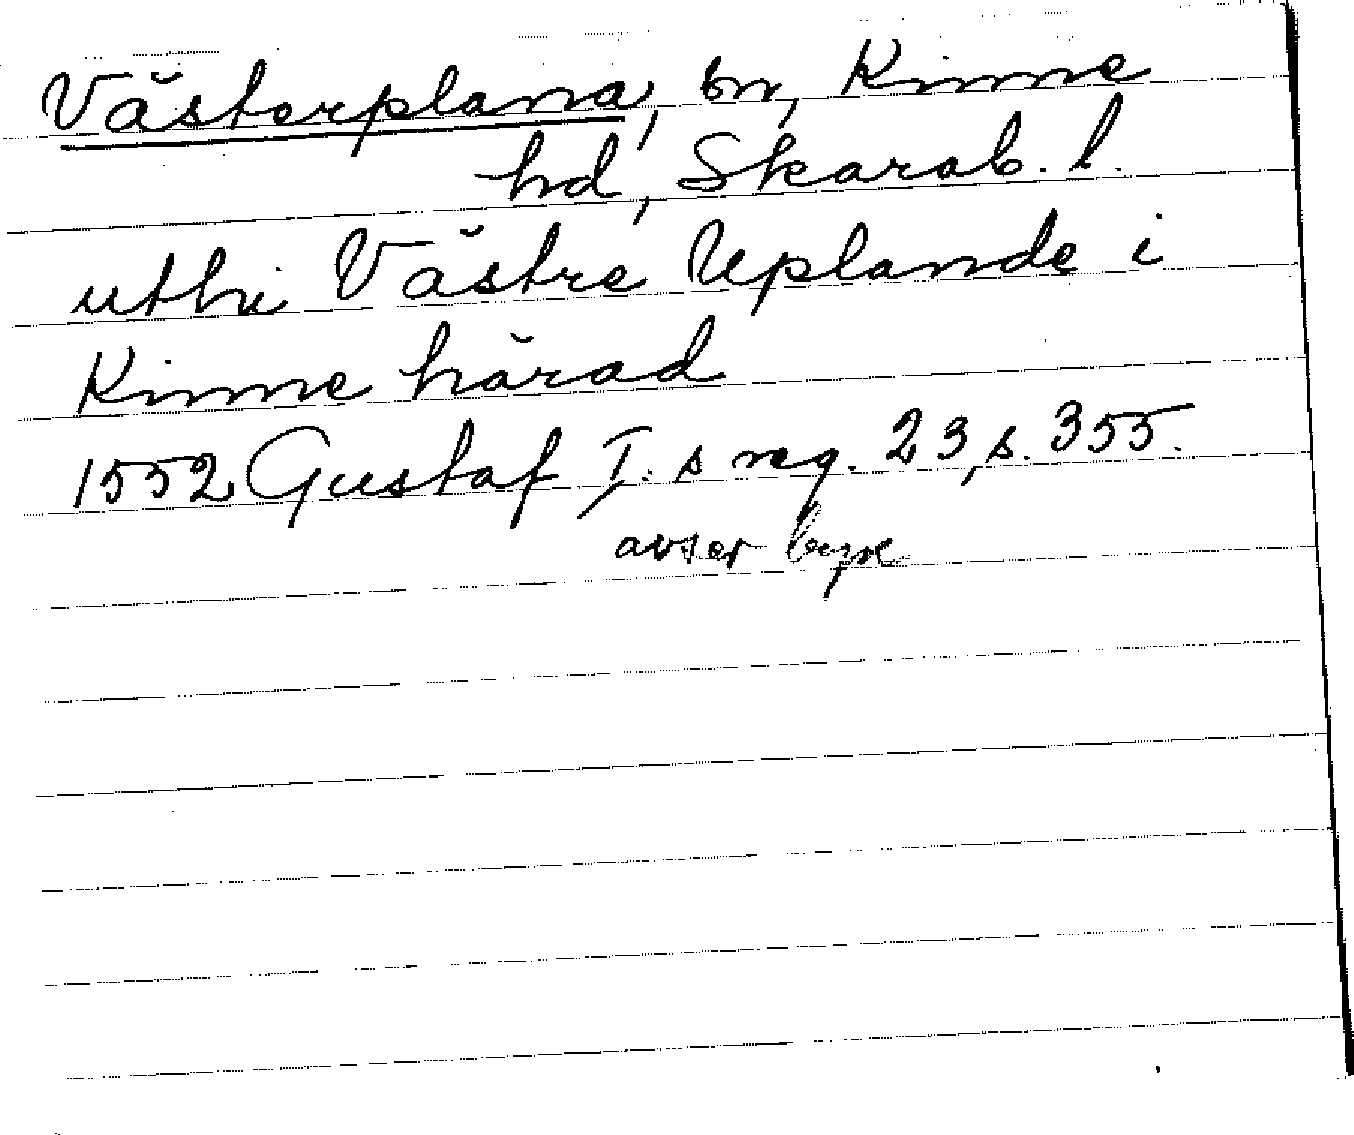 Västerplana, sn, Kinne
hd, Skarab. l.
uthi Västre Uplande i
Kinne härad
1552 Gustaf I:s reg. 23, s. 355.
avser byn